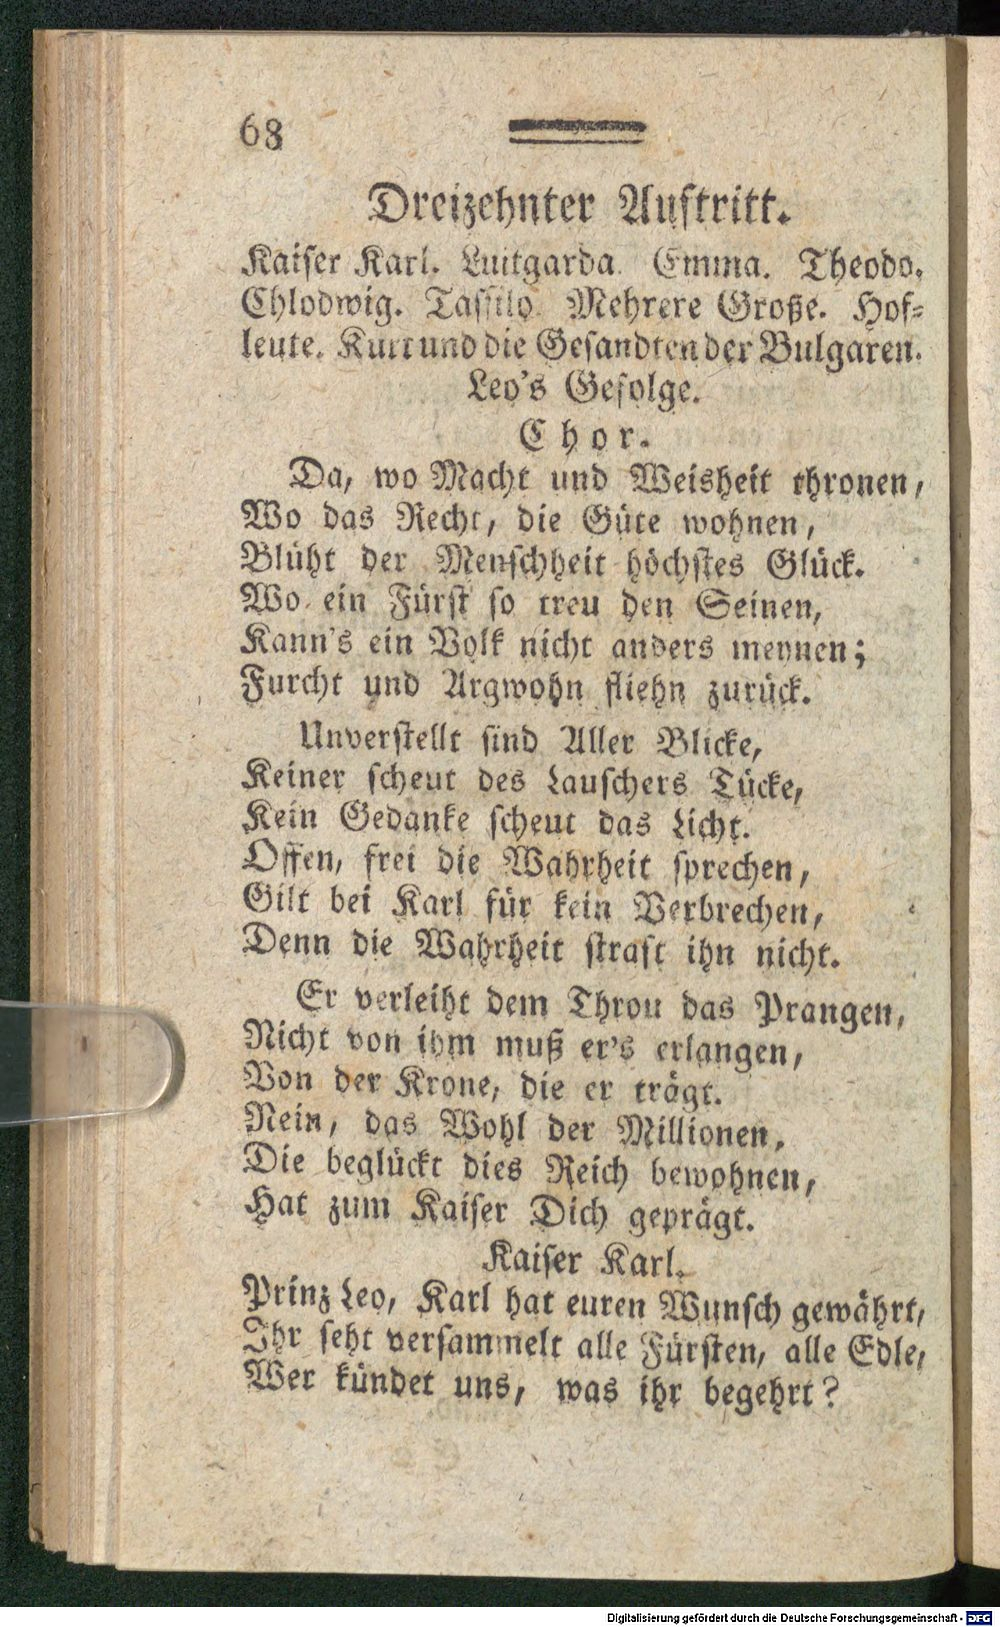 68
Dreizehnter Auftritt.
Kaiser Karl. Luitgarda. Emma. Theodo.
Chlodwig. Tassilo. Mehrere Große. Hof-
leute. Kurt und die Gesandten der Bulgaren.
Leo's Gefolge.
Chor.
Da, wo Macht und Weisheit thronen,
Wo das Recht, die Güte wohnen,
Blüht der Menschheit höchstes Glück.
Wo ein Fürst so treu den Seinen,
Kann's ein Volk nicht anders meynen;
Furcht und Argwohn fliehn zurück.
Unverstellt sind Aller Blicke,
Keiner scheut des Lauschers Tücke,
Kein Gedanke scheut das Licht.
Offen, frei die Wahrheit sprechen,
Gilt bei Karl für kein Verbrechen,
Denn die Wahrheit straft ihn nicht.
Er verleiht dem Thron das Prangen,
Nicht von ihm muß er's erlangen,
Von der Krone, die er trägt.
Nein, das Wohl der Millionen,
Die beglückt dies Reich bewohnen,
Hat zum Kaiser Dich geprägt.
Kaiser Karl.
Prinz Leo, Karl hat euren Wunsch gewährt,
Ihr seht versammelt alle Fürsten, alle Edle,
Wer kündet uns, was ihr begehrt?
Digitalisierung gefördert durch die Deutsche Forschungsgemeinschaft - DFG